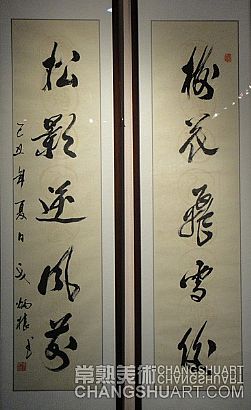 梅花飛雪後
松影逆風前
己丑年夏日
常熟美術 CHANGSHUART
CHANGSHUART.COM